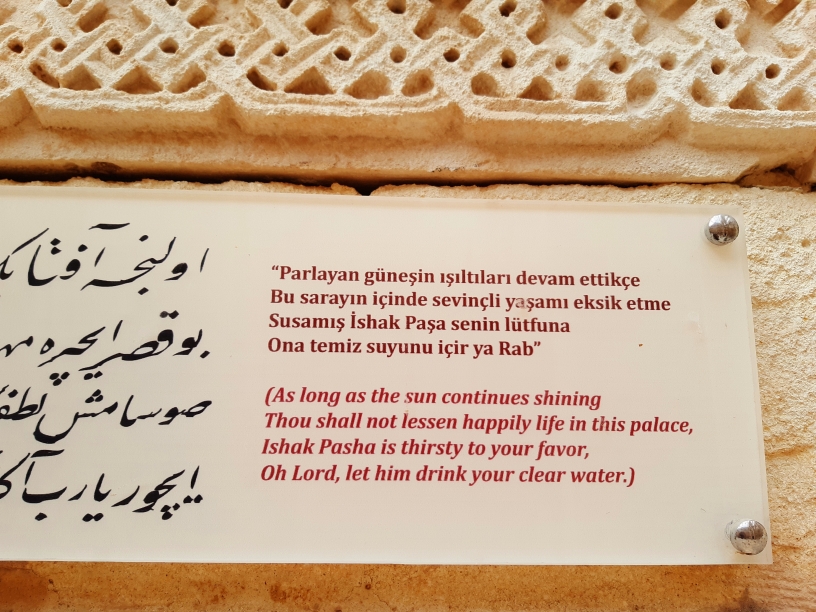 اولنجه آفتابك
بو قصر ایچره
صوسامش لطفك
ایچور یارب آكا
“Parlayan güneşin ışıltıları devam ettikçe
Bu sarayın içinde sevinçli yaşamı eksik etme
Susamış İshak Paşa senin lütfuna
Ona temiz suyunu içir ya Rab”
(As long as the sun continues shining
Thou shall not lessen happily life in this palace,
Ishak Pasha is thirsty to your favor,
Oh Lord, let him drink your clear water.)